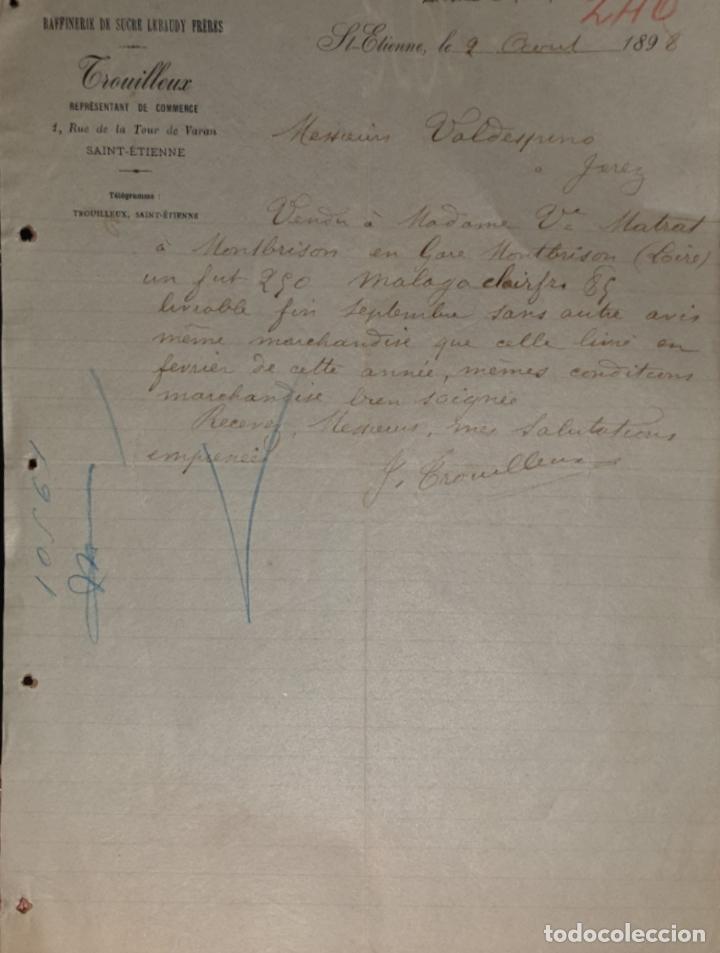 240
RAFFINERIE DE SUCRE LEBAUDY FRÈRES
Trouilleux
REPRÉSENTANT DE COMMERCE
1, Rue de la Tour de Varan
SAINT-ÉTIENNE
Télégramme :
TROUILLEUX, SAINT-ÉTIENNE
St-Etienne, le 2 Aout 1898
Messieurs Valdespino
a Jerez
Vendu à Madame Ve Matrat
à Montbrison en Gare Montbrison (Loire)
un fut 250 Malaga clair frs 85
livrable fin septembre sans autre avis
même marchandise que celle livré en
fevrier de cette année, mêmes conditions
marchandise bien soignée
Recevez, Messieurs, mes Salutations
empressées
J. Trouilleux
todocoleccion.net